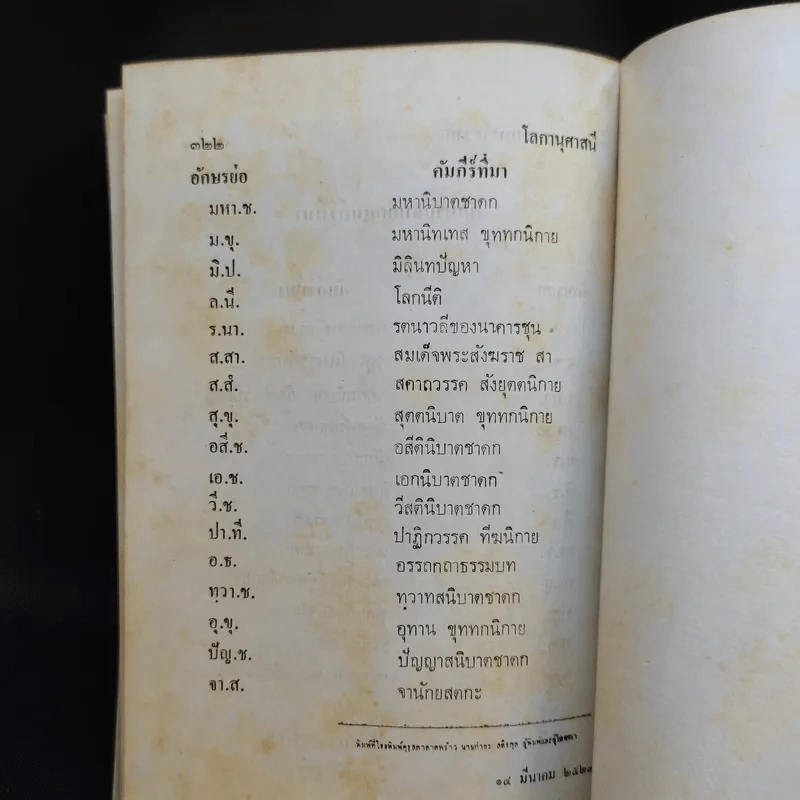 ๓๒๒ โลกานุศาสนี
อักษรย่อ คัมภีร์ที่มา
มหา.ช. มหานิบาตชาดก
ม.ขุ. มหานิทเทส ขุททกนิกาย
มิ.ป. มิลินทปัญหา
ล.นี. โลกนีติ
ร.นา. รตนาวลีของนาคารชุน
ส.สา. สมเด็จพระสังฆราช สา
ส.สํ. สคาถวรรค สังยุตตนิกาย
สุ.ขุ. สุตตนิบาต ขุททกนิกาย
อสี.ช. อสีตินิบาตชาดก
เอ.ช. เอกนิบาตชาดก
วี.ช. วีสตินิบาตชาดก
ปา.ที. ปาฏิกวรรค ทีฆนิกาย
อ.ธ. อรรถกถาธรรมบท
ทฺวา.ช. ทฺวาทสนิบาตชาดก
อุ.ขุ. อุทาน ขุททกนิกาย
ปัญ.ช. ปัญญาสนิบาตชาดก
จา.ส. จานักยสตกะ
พิมพ์ที่โรงพิมพ์คุรุสภาลาดพร้าว นายกำธร สถิรกุล ผู้พิมพ์และผู้โฆษณา
๑๔ มีนาคม